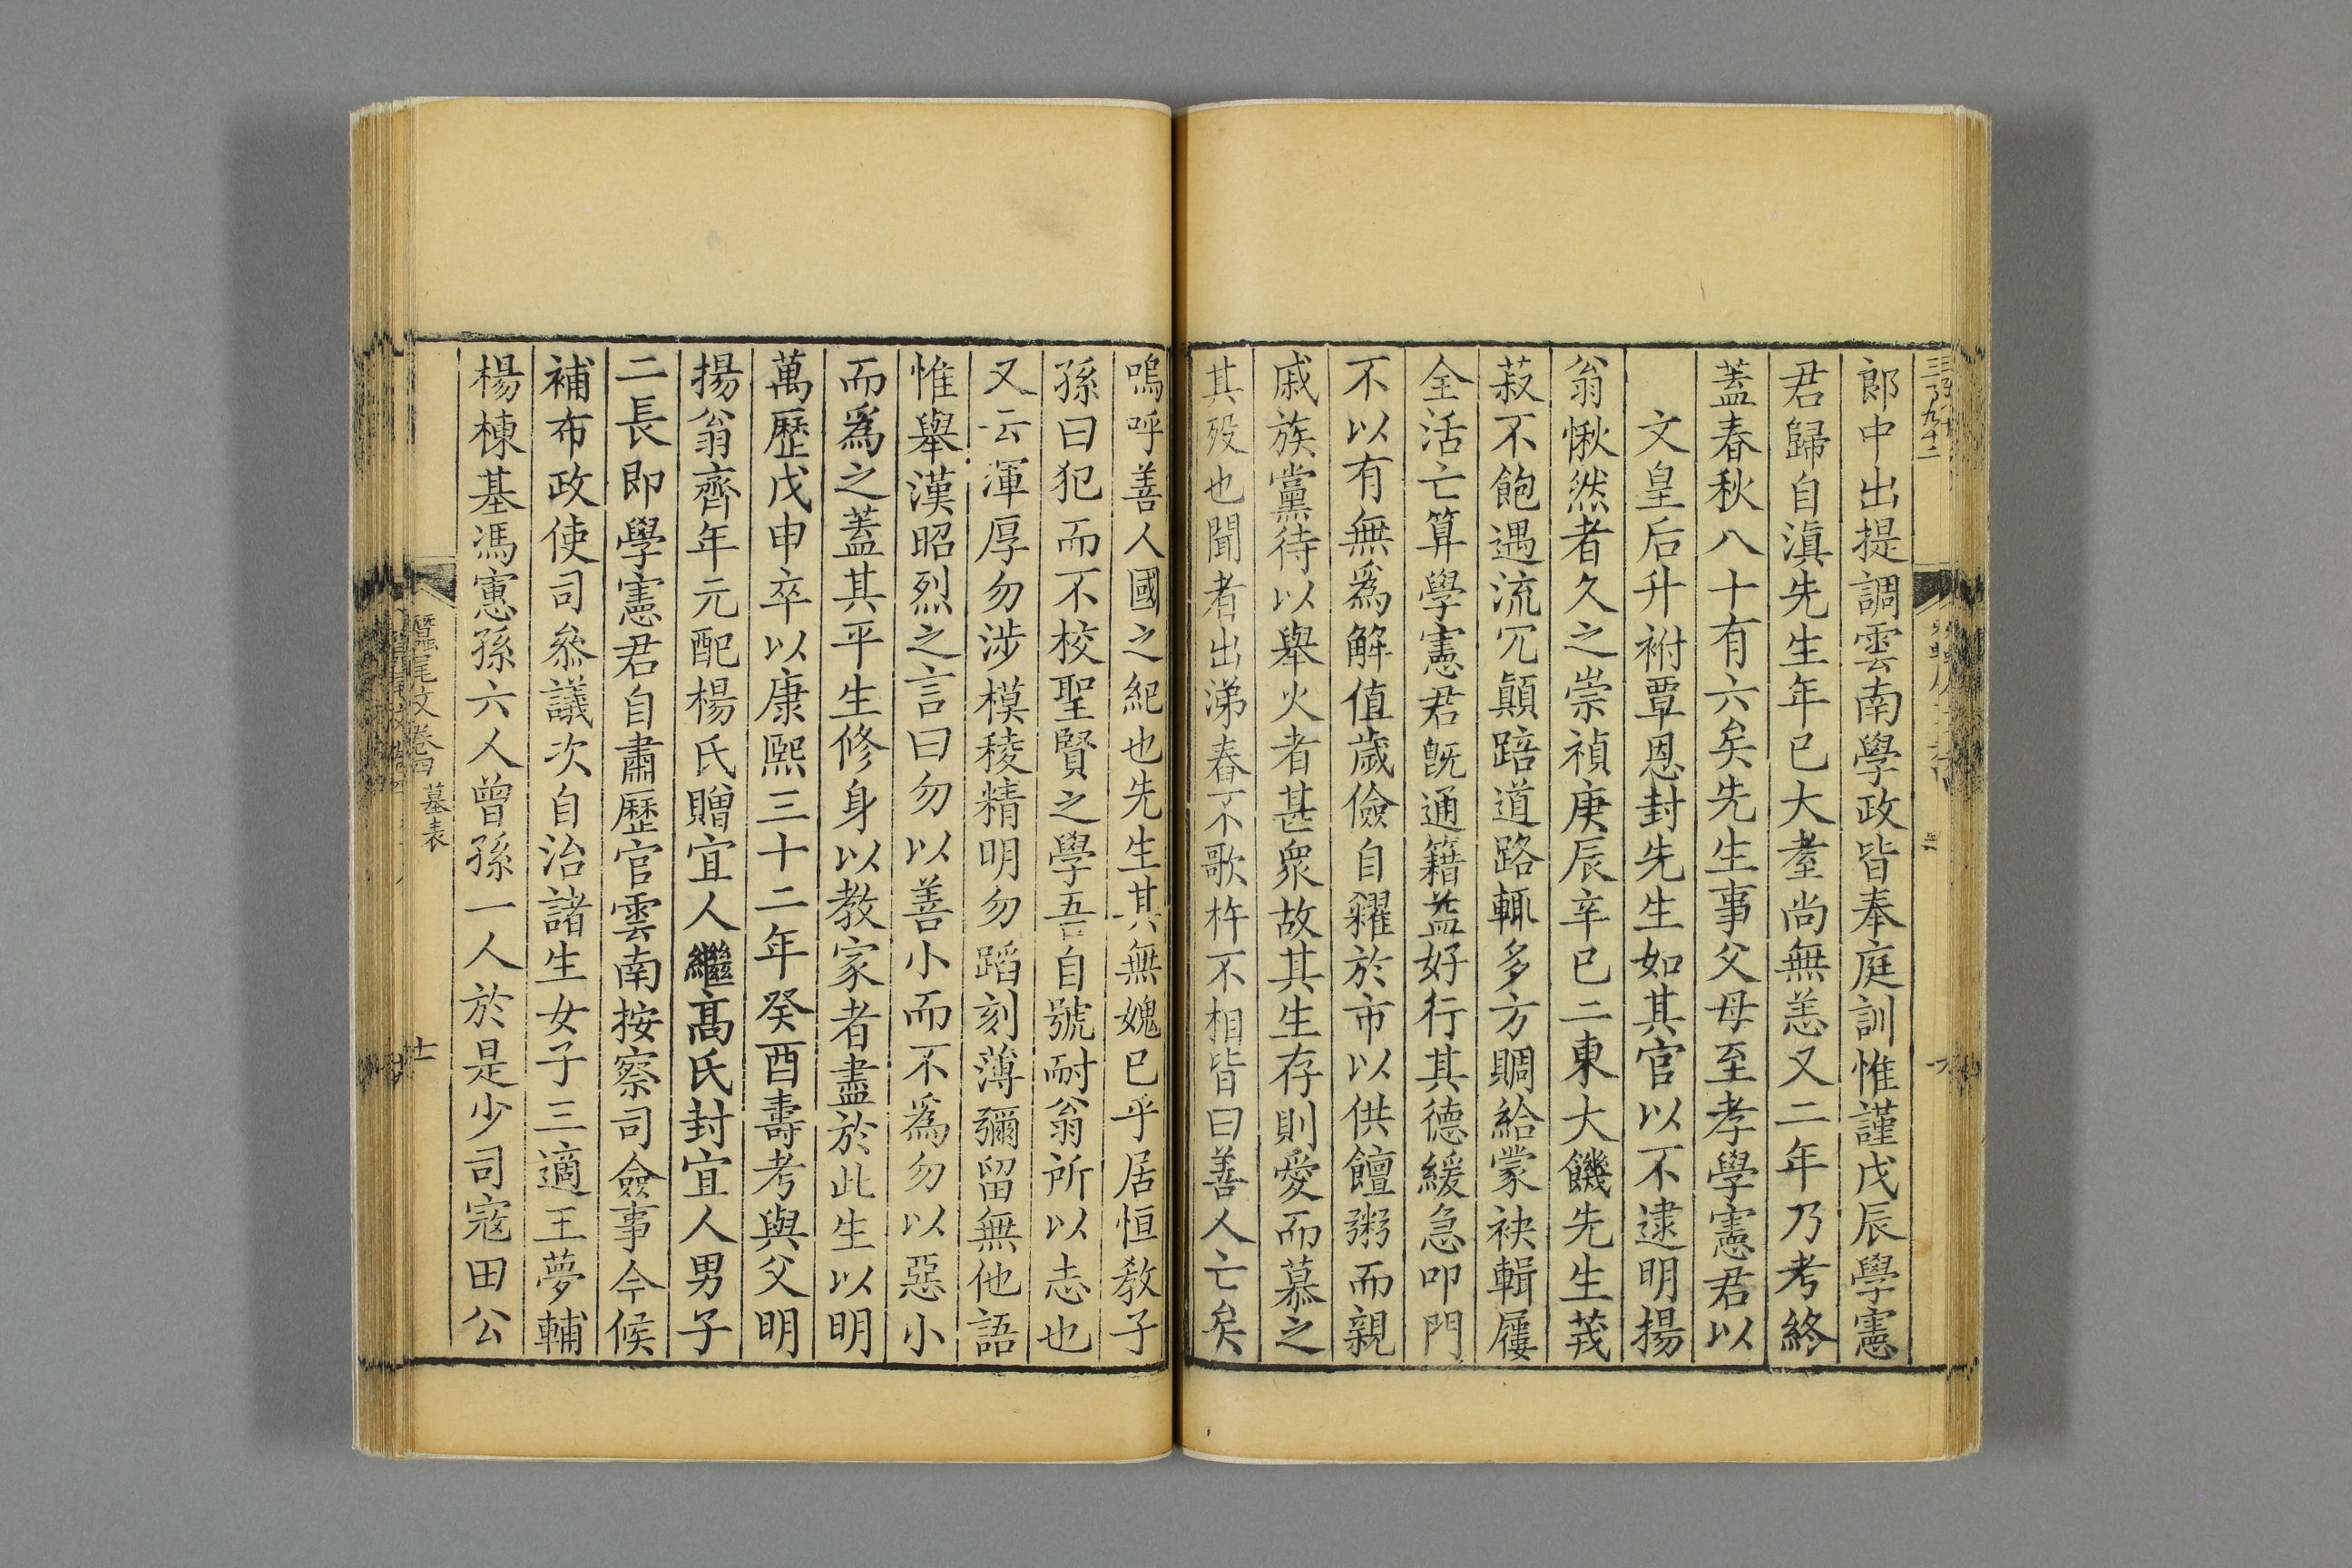 郎中出提調雲南學政皆奉庭訓惟謹戊辰學憲
君歸自滇先生年已大耋尚無恙又二年乃考終
蓋春秋八十有六矣先生事父母至孝學憲君以
文皇后升祔覃恩封先生如其官以不逮明揚
翁愀然者久之崇禎庚辰辛巳二東大饑先生茙
菽不飽遇流冗顛踣道路輒多方賙給蒙袂輯屨
全活亡算學憲君旣通籍益好行其德緩急叩門
不以有無爲解值歲儉自糴於市以供饘粥而親
戚族黨待以舉火者甚衆故其生存則愛而慕之
其歿也聞者出涕舂不歌杵不相皆曰善人亡矣
嗚呼善人國之紀也先生其無媿巳乎居恒教子
孫曰犯而不校聖賢之學吾自號耐翁所以志也
又云渾厚勿涉模稜精明勿蹈刻薄彌留無他語
惟舉漢昭烈之言曰勿以善小而不爲勿以惡小
而爲之蓋其平生修身以教家者盡於此生以明
萬歷戊申卒以康熙三十二年癸酉壽考與父明
揚翁齊年元配楊氏贈宜人繼高氏封宜人男子
二長即學憲君自肅歷官雲南按察司僉事今候
補布政使司叅議次自治諸生女子三適王夢輔
楊棟基馮憲孫六人曾孫一人於是少司寇田公
蠶尾文卷四 墓表
十一